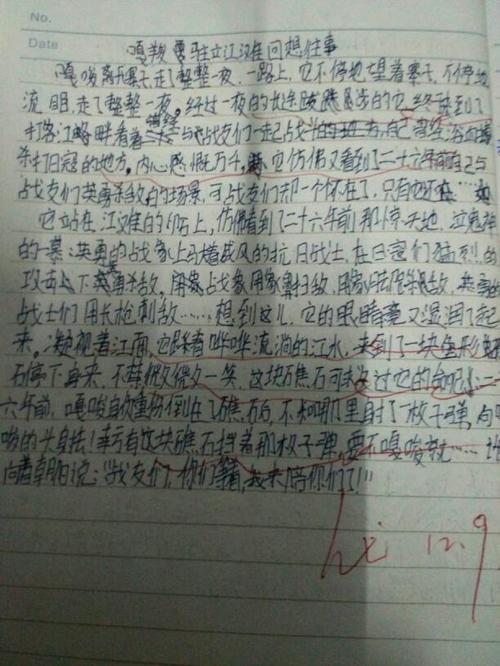 No.
Date
嘎羧 屹立江滩 回想往事
嘎羧离开寨子,走了整整一夜,一路上,它不停地望着寨子,不停地
流眼,走了整整一夜。经过一夜的长途跋涉的它,终于到了
打洛江畔看着与战友们一起战斗的地方,自己浴血
杀打日寇的地方。内心感慨万千,它仿佛又看到了二十六年前自己与
战友们英勇杀敌的场景,可战友们却一个不在了,只有它还在
它站在江滩的石上,仿佛看到了二十六年前那惊天地,泣鬼神
的一幕:英勇的战象上驮着威风的抗日战士,在日寇们猛烈的
攻击下英勇杀敌。用象鼻扫敌,用象
战士们用长枪刺敌……想到这儿,它的眼睛竟又湿润了起
来。凝视着江面,它踩着哗哗流淌的江水,来到了一块龟形礁
石停下身来,不禁傻傻一笑,这块礁石可救过它的命呢!二十
六年前,嘎羧身负重伤倒在了礁石后,不知哪里射了一枚子弹,向嘎
羧的头射去!幸亏有这块礁石挡着那枚子弹,要不嘎羧就……
向着朝阳说:"战友们,你们等着,我来陪你们了!"
12.9